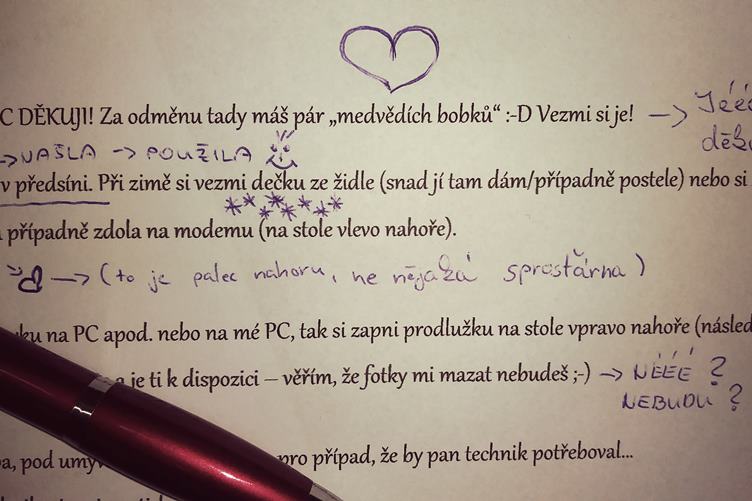 C DĚKUJI! Za odměnu tady máš pár „medvědích bobků“ :-D Vezmi si je! → Jééé
děku
→ NAŠLA → POUŽILA
v předsíni. Při zimě si vezmi dečku ze židle (snad jí tam dám/případně postele) nebo si
případně zdola na modemu (na stole vlevo nahoře).
→ (to je palec nahoru, ne nějaká sprosťárna)
ku na PC apod. nebo na mé PC, tak si zapni prodlužku na stole vpravo nahoře (násled
a je ti k dispozici – věřím, že fotky mi mazat nebudeš ;-) → NÉÉÉ ?
NEBUDU ?
a, pod umyv pro případ, že by pan technik potřeboval...